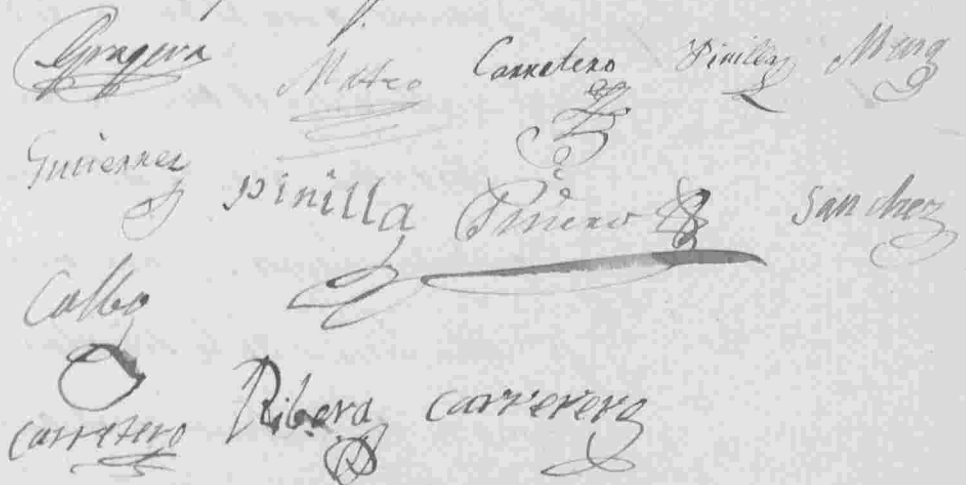 Gragera Matteo Carretero Pinilla
Gutierrez pinilla Piñero Sanchez
Calbo
carretero Ribera carrerero